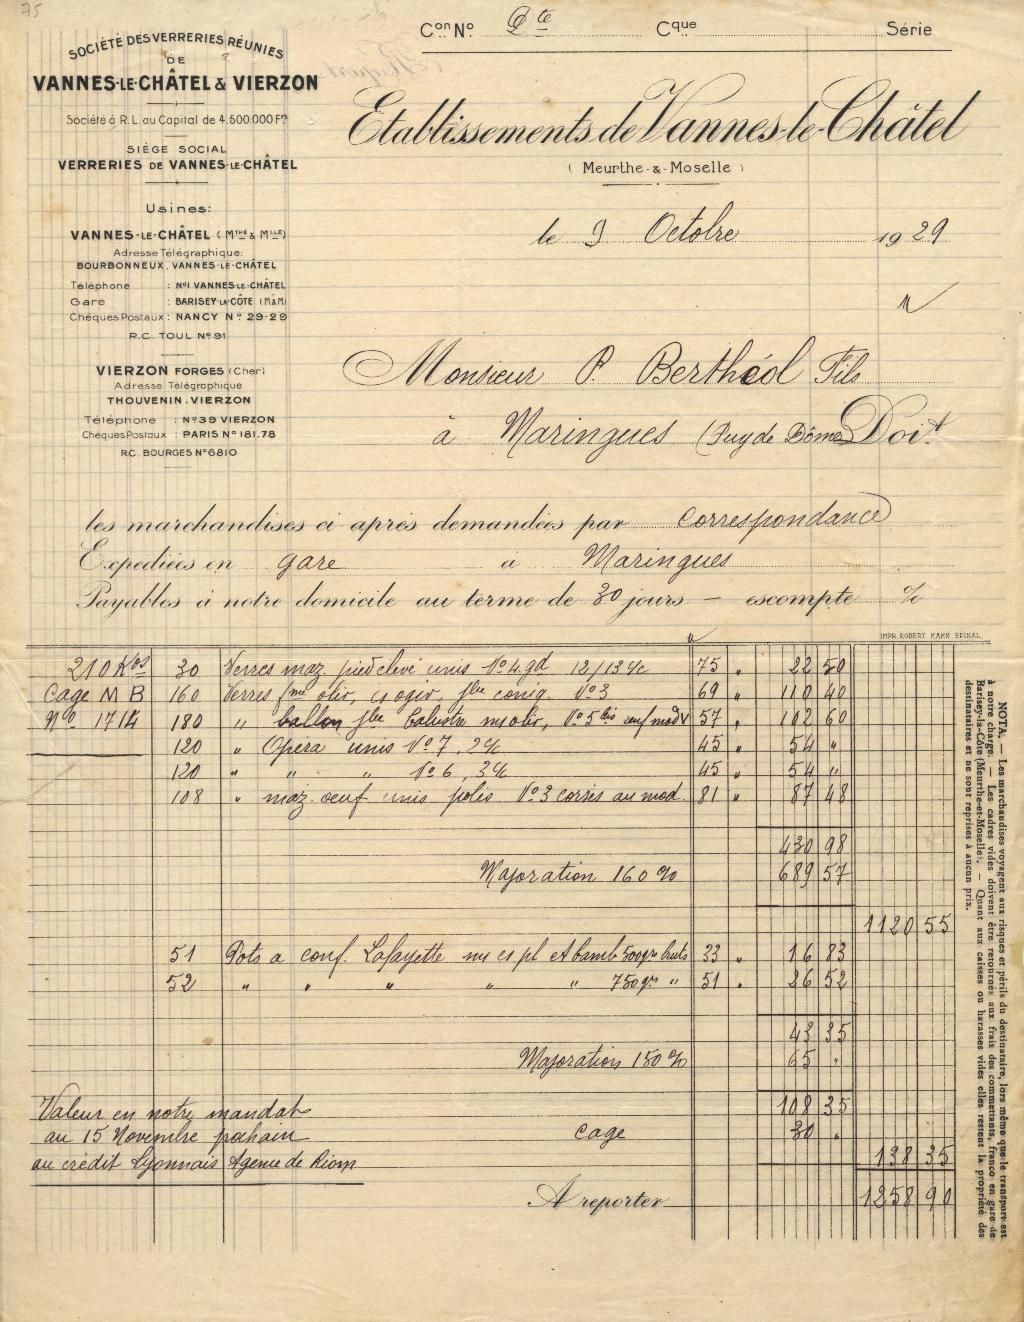 75
Con No Dte Cque Série
SOCIÉTÉ DES VERRERIES RÉUNIES
DE
VANNES-LE-CHÂTEL & VIERZON
Société à R.L. au Capital de 4.500.000 Frs
SIÈGE SOCIAL
VERRERIES DE VANNES-LE-CHÂTEL
Usines:
VANNES-LE-CHÂTEL (MTHE & MLLE)
Adresse Télégraphique:
BOURBONNEUX, VANNES-LE-CHÂTEL
Téléphone : No1 VANNES-LE-CHÂTEL
Gare : BARISEY-LA-CÔTE (M&M)
Chèques Postaux : NANCY No 29-29
R.C. TOUL No 91
VIERZON FORGES (Cher)
Adresse Télégraphique
THOUVENIN.VIERZON
Téléphone : No 39 VIERZON
Chèques Postaux : PARIS No 181.78
R.C. BOURGES No 6810
Etablissements de Vannes-le-Châtel
(Meurthe-&-Moselle)
le 9 Octobre 1929
Monsieur P. Berthéol Fils
à Maringues (Puy de Dôme) Doit
les marchandises ci après demandées par correspondance
Expédiées en gare à Maringues
Payables à notre domicile au terme de 30 jours — escompte %
IMPR. ROBERT KAHN EPINAL
210 Kos 30 Verres maz. pied élevé unis No 4 gd 12/13 %c 75 " 22 50
Cage M B 160 Verres olir, No 3 69 " 110 40
No 1714 180 " ballon jbe balustre No 5 bis 57 " 102 60
120 " Opera unis No 7, 2%c 45 " 54 "
120 " " " No 6, 3%c 45 " 54 "
108 " maz. oeuf unis polis No 3 corsés au mod. 81 " 87 48
430 98
Majoration 160 % 689 57
1120 55
51 Pots a conf. Lafayette 500grs bruts 33 " 16 83
52 " " " " " 750grs " 51 " 26 52
43 35
Majoration 150 % 65 "
108 35
Valeur en notre mandat
au 15 Novembre prochain cage 30 "
au crédit Lyonnais Agence de Riom 138 35
A reporter 1258 90
NOTA. — Les marchandises voyagent aux risques et périls du destinataire, lors même que le transport est
à notre charge. — Les cadres vides doivent être retournés aux frais des commettants, franco en gare de
Barisey-la-Côte (Meurthe-et-Moselle). — Quant aux caisses ou harasses vides elles restent la propriété des
destinataires et ne sont reprises à aucun prix.